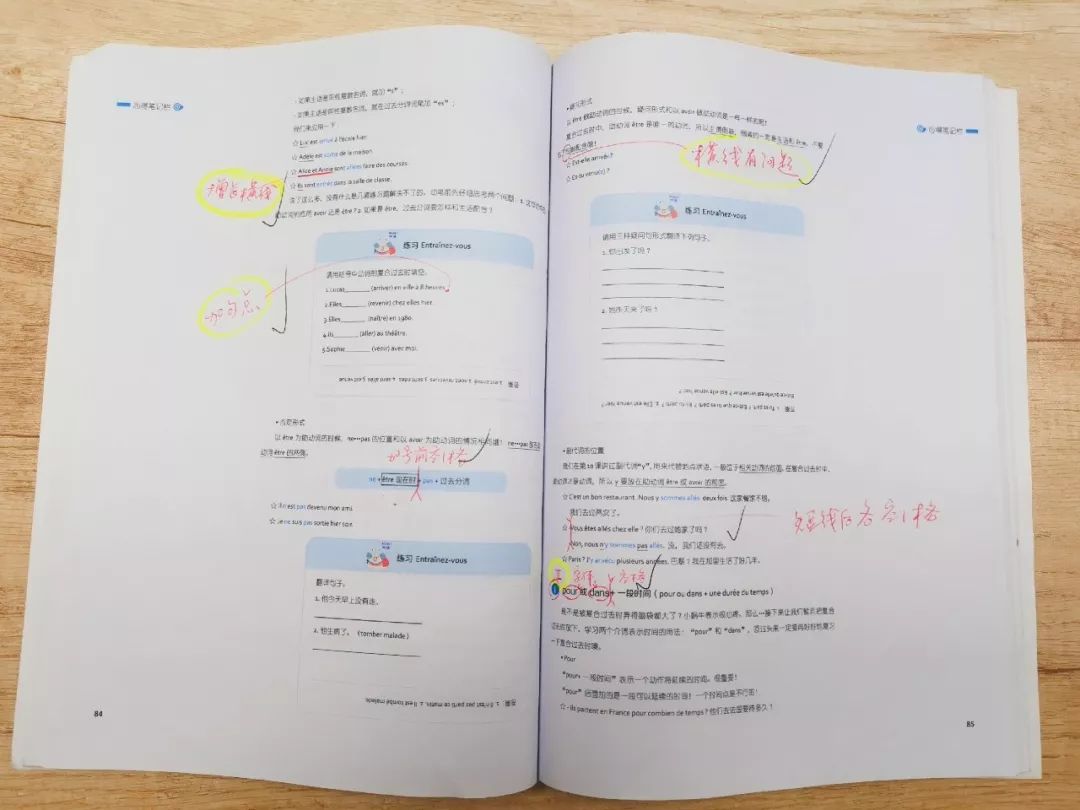 心得笔记栏
·如果主语是阳性复数名词，就加“s”；
·如果主语是阴性复数名词，就在过去分词词尾加“es”；
我们来应用一下：
☆ Luc est arrivé à l'école hier.
☆ Adèle est sortie de la maison.
☆ Alice et Annie sont allées faire des courses.
☆ Ils sont entrés dans la salle de classe.
增长横线
助动词的应用 avoir 还是 être？2. 如果是 être，过去分词要怎样和主语配合？
练习 Entraînez-vous
请用括号中动词的复合过去时填空。
1.Lucas (arriver) en ville à 8 heures.
2.Elles (revenir) chez elles hier.
3.Elles (naître) en 1980.
4.Ils (aller) au théâtre.
5.Sophie (venir) avec moi.
加句点
·否定形式
以 être 为助动词的时候，ne…pas 的位置和以 avoir 为助动词的情况相同哦！ne…pas
动词 être 的两侧。
加号前空1格
ne + être 现在时 + pas + 过去分词
☆ Il n'est pas devenu mon ami.
☆ Je ne suis pas sortie hier soir.
练习 Entraînez-vous
翻译句子。
1. 他今天早上没有走。
2. 他生病了。（tomber malade）
答案：1. Il n'est pas parti ce matin. 2. Il est tombé malade.
84
心得笔记栏
·疑问形式
以 être 做助动词的时候，疑问形式和以 avoir 做助动词是一模一样的呢！
横线有问题
☆ Est-elle arrivée ?
☆ Es-tu venu(e) ?
练习 Entraînez-vous
请用三种疑问句形式翻译下列句子。
1. 你出发了吗？
2. 她昨天来了吗？
·副代词的位置
我们在第18课讲过副代词“y”，用来代替地点状语，一般位于相关动词的前面。在复合过去时中，
助动词才是动词，所以 y 要放在助动词 être 或 avoir 的前面。
☆ C'est un bon restaurant. Nous y sommes allés deux fois. 这家餐家不错，
我们去过两次了。
短线后各空1格
☆ Vous êtes allés chez elle ? 你们去过她家了吗？
Non, nous n'y sommes pas allés. 没，我们还没有去。
☆ Paris ? J'y ai vécu plusieurs années. 巴黎？我在那里生活了好几年。
pour 或 dans+ 一段时间（pour ou dans + une durée du temps）
过去时放下，学习两个介词表示时间的用法：“pour”和“dans”，
一下复合过去时噢。
·Pour
“pour+ 一段时间”表示一个动作将延续的时间。很重要！
“pour”后面加的是一段可以延续的时间！一个时间点是不行的！
☆ - Ils partent en France pour combien de temps ? 他们去法国要待多久？
85